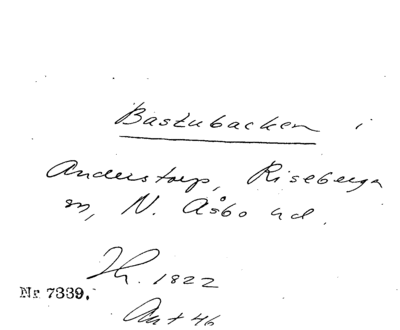 Bastubacken i
Anderstorp, Riseberga
sn, N. Åsbo hd.
Th. 1822
Nr 7339.